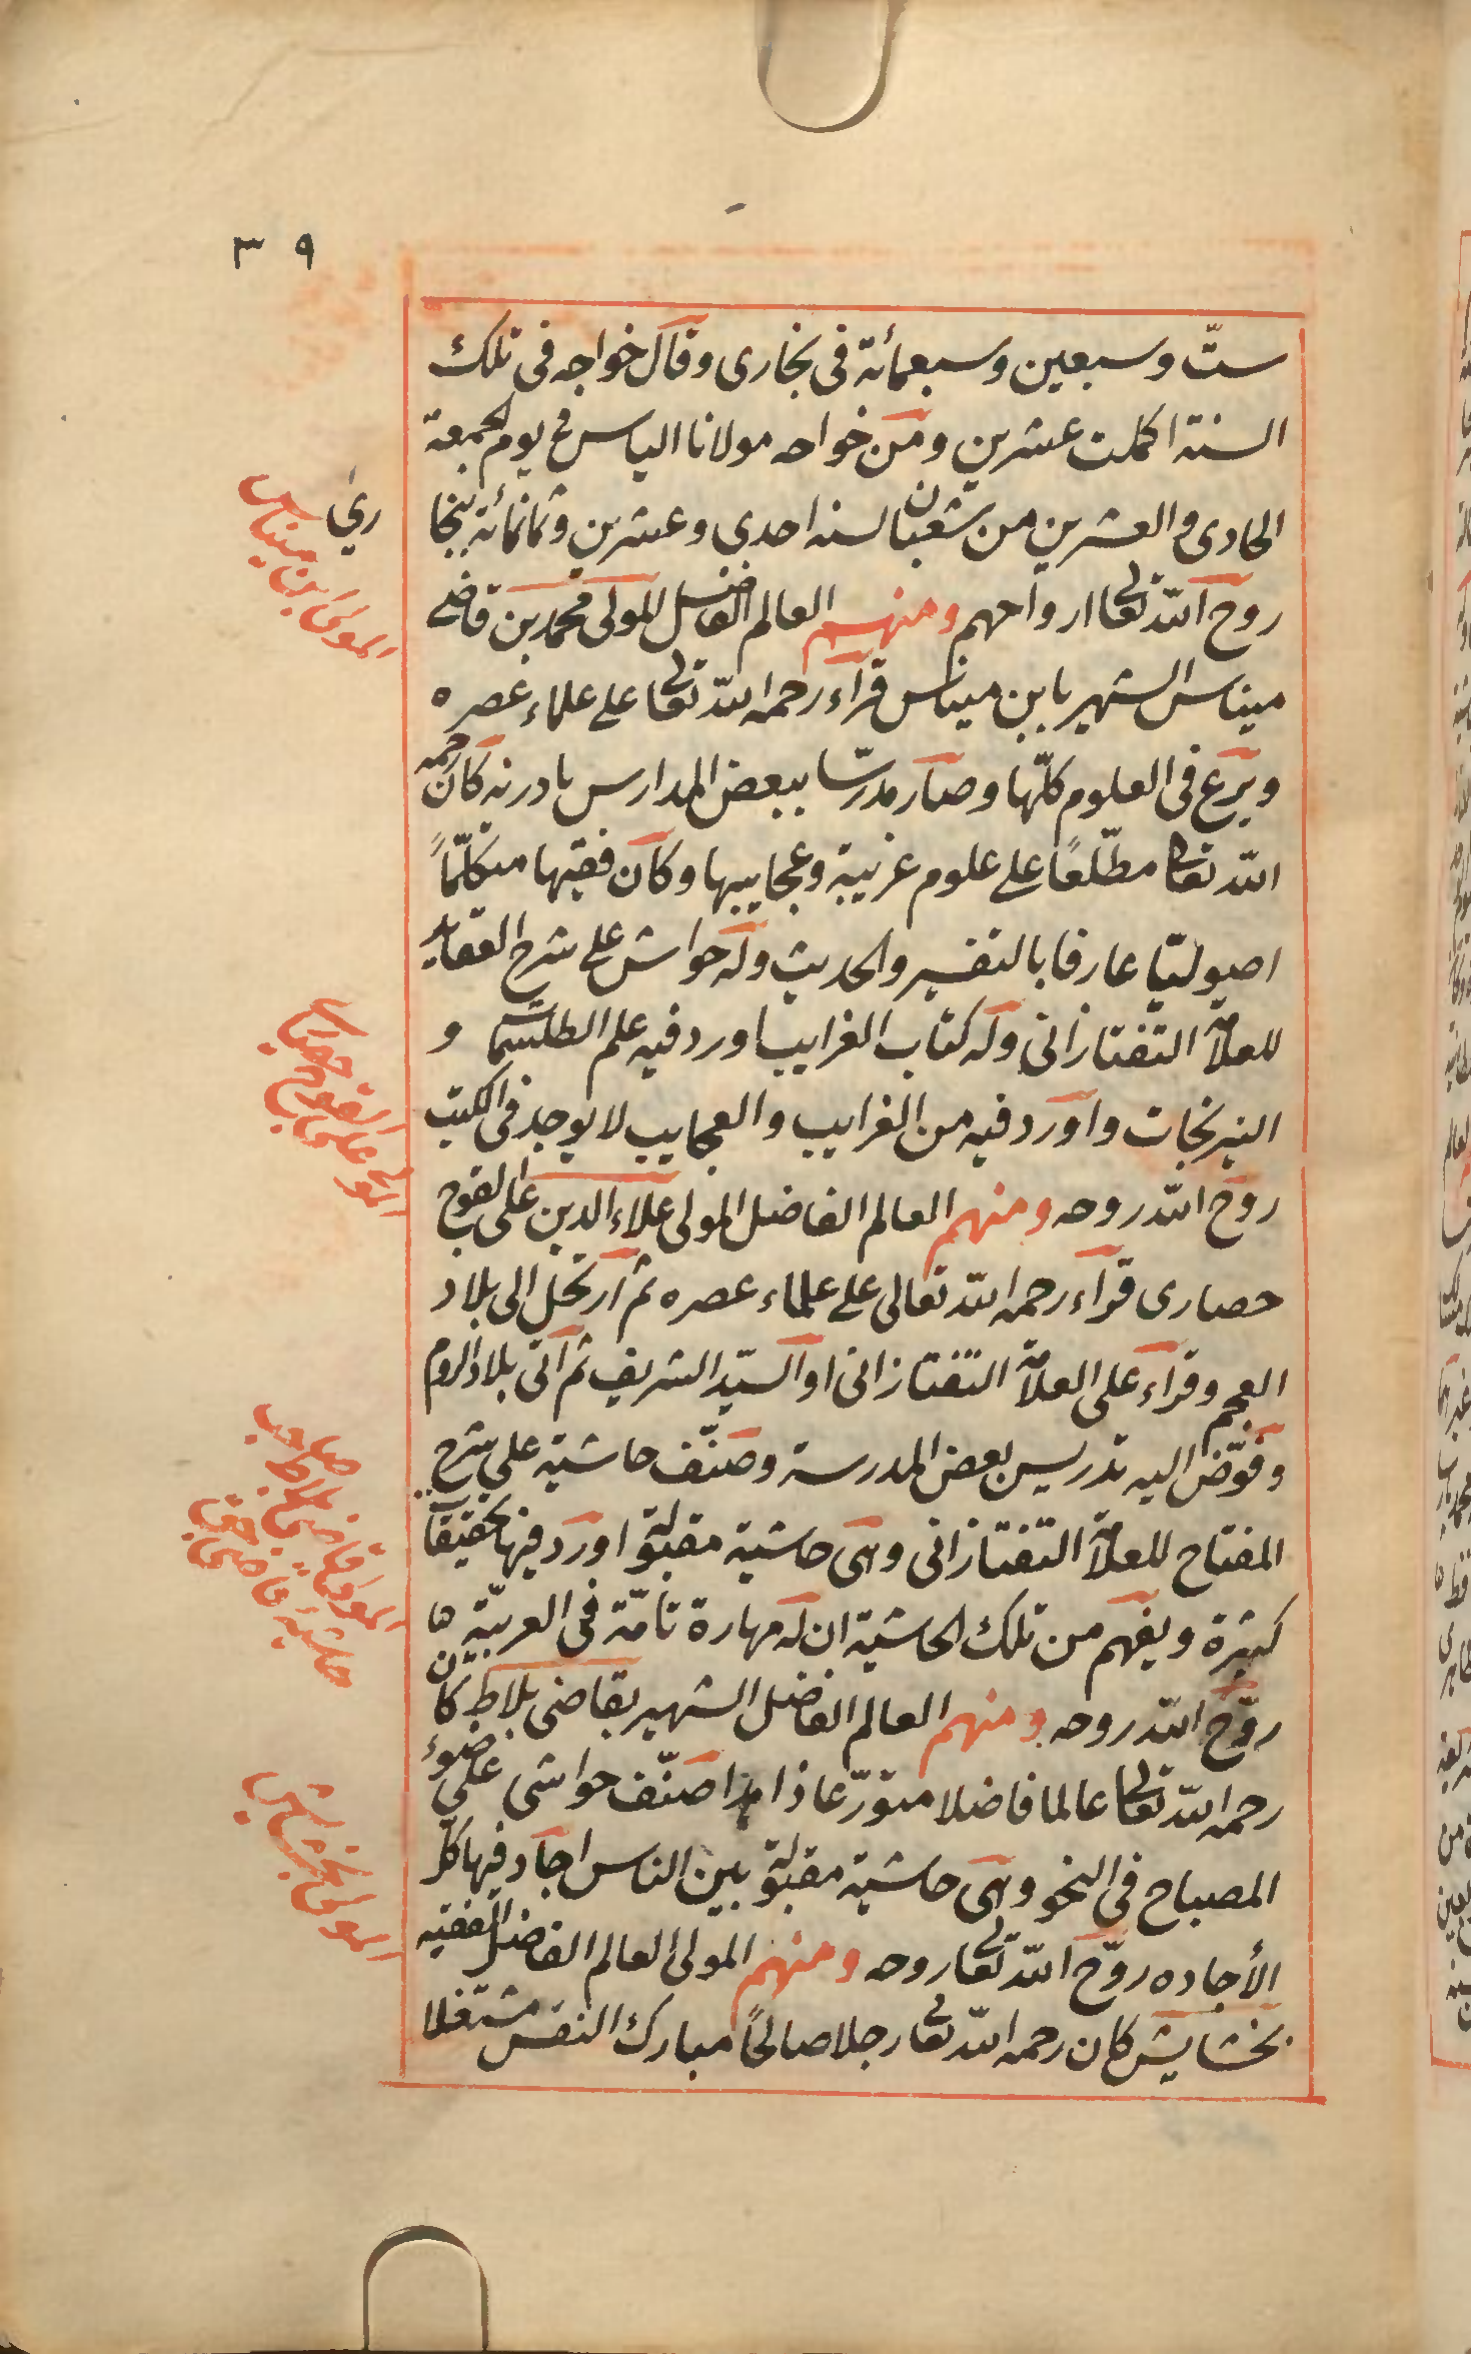 ٣٩
ستّ وسبعين وسبعمائة فى بخارى وقال خواجه فى تلك
السنة اكملت عشرين ومن خواجه مولانا الياس فى يوم الجمعة
الحادى والعشرين من شعبان لسنه احدى وعشرين وثمانمائة ببخا
رى
روح الله تعالى ارواحهم ومنهم العالم الفاضل المولى محمد بن قاضى
المولى ابن ميناس
ميناس الشهير بابن ميناس قراء رحمه الله تعالى على علماء عصره
وبرع فى العلوم كلّها وصار مدرّسا ببعض المدارس بادرنه كان رحمه
الله تعالى مطّلعًا على علوم غريبة وعجايبها وكان فقيها متكلّمًا
اصوليّا عارفا بالتفسير والحديث وله حواش على شرح العقايد
للعلاّمة التفتازانى وله كتاب الغرايب اورد فيه علم الطلسمات و
النيرنجات واورد فيه من الغرايب والعجايب لا يوجد فى الكتب
المولى على القوج حصارى
روح الله روحه ومنهم العالم الفاضل المولى علاء الدين على القوج
حصارى قراء رحمه الله تعالى على علماء عصره ثم ارتحل الى بلاد
العجم وقراء على العلاّمة التفتازانى او السيّد الشريف ثم اتى بلاد الروم
وفوّض اليه تدريس بعض المدرسة وصنّف حاشية على شرح
المفتاح للعلاّمة التفتازانى وهى حاشية مقبولة اورد فيها تحقيقات
كثيرة ويفهم من تلك الحاشية ان له مهارة تامّة فى العربيّة
المولى قاضى بلاط صاحب
حاشية
روّح الله روحه ومنهم العالم الفاضل الشهير بقاضى بلاط كان
رحمه الله تعالى عالما فاضلا متورّعا زاهدا صنّف حواشى على ضوء
المصباح فى النحو وهى حاشية مقبولة بين الناس اجاد فيها كل
الأجاده روّح الله تعالى روحه ومنهم المولى العالم الفاضل الفقيه
المولى بخشايش
بخشايش كان رحمه الله تعالى رجلا صالحًا مبارك النفس مشتغلا